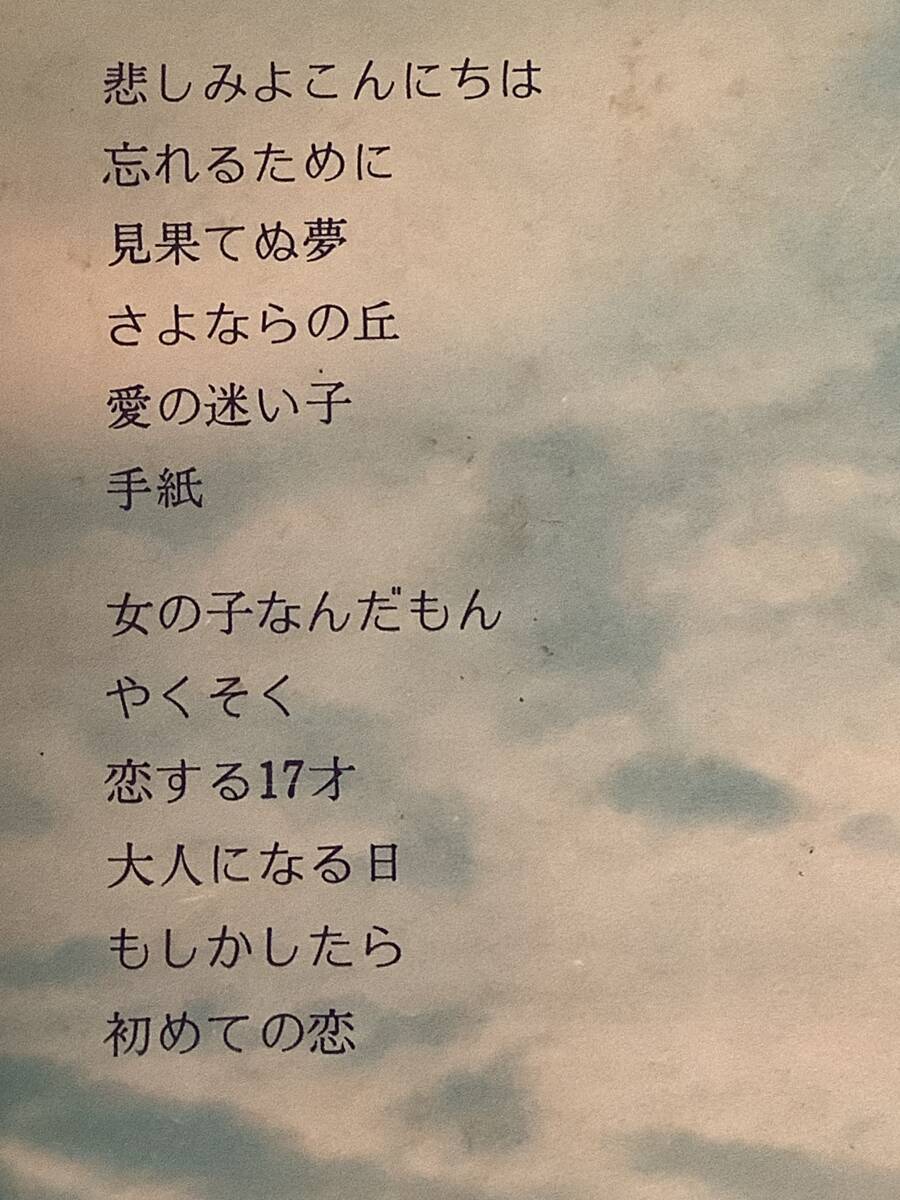 悲しみよこんにちは
忘れるために
見果てぬ夢
さよならの丘
愛の迷い子
手紙
女の子なんだもん
やくそく
恋する17才
大人になる日
もしかしたら
初めての恋